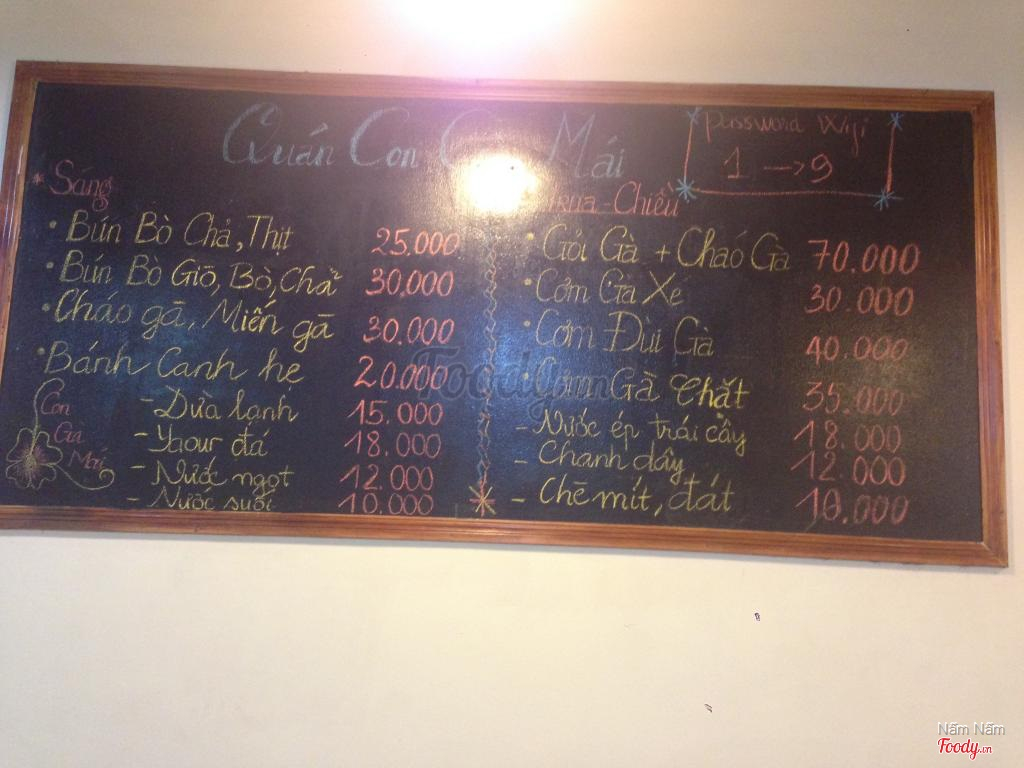 Quán Con Mái
Password Wifi
1 → 9
* Sáng
• Bún Bò Chả, Thịt 25.000
• Bún Bò Giò, Bò, Chả 30.000
• Cháo gà, Miến gà 30.000
• Bánh Canh hẹ 20.000
- Dừa lạnh 15.000
- Yaour đá 18.000
- Nước ngọt 12.000
- Nước suối 10.000
Con
Gà
Mái
Trưa - Chiều
• Gỏi Gà + Cháo Gà 70.000
• Cơm Gà Xé 30.000
• Cơm Đùi Gà 40.000
• Cơm Gà Chặt 35.000
- Nước ép trái cây 18.000
- Chanh dây 12.000
- Chè mít, đát 10.000
Nấm Nấm
Foody.vn